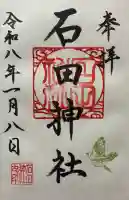 奉拝
石田神社
令和八年一月八日